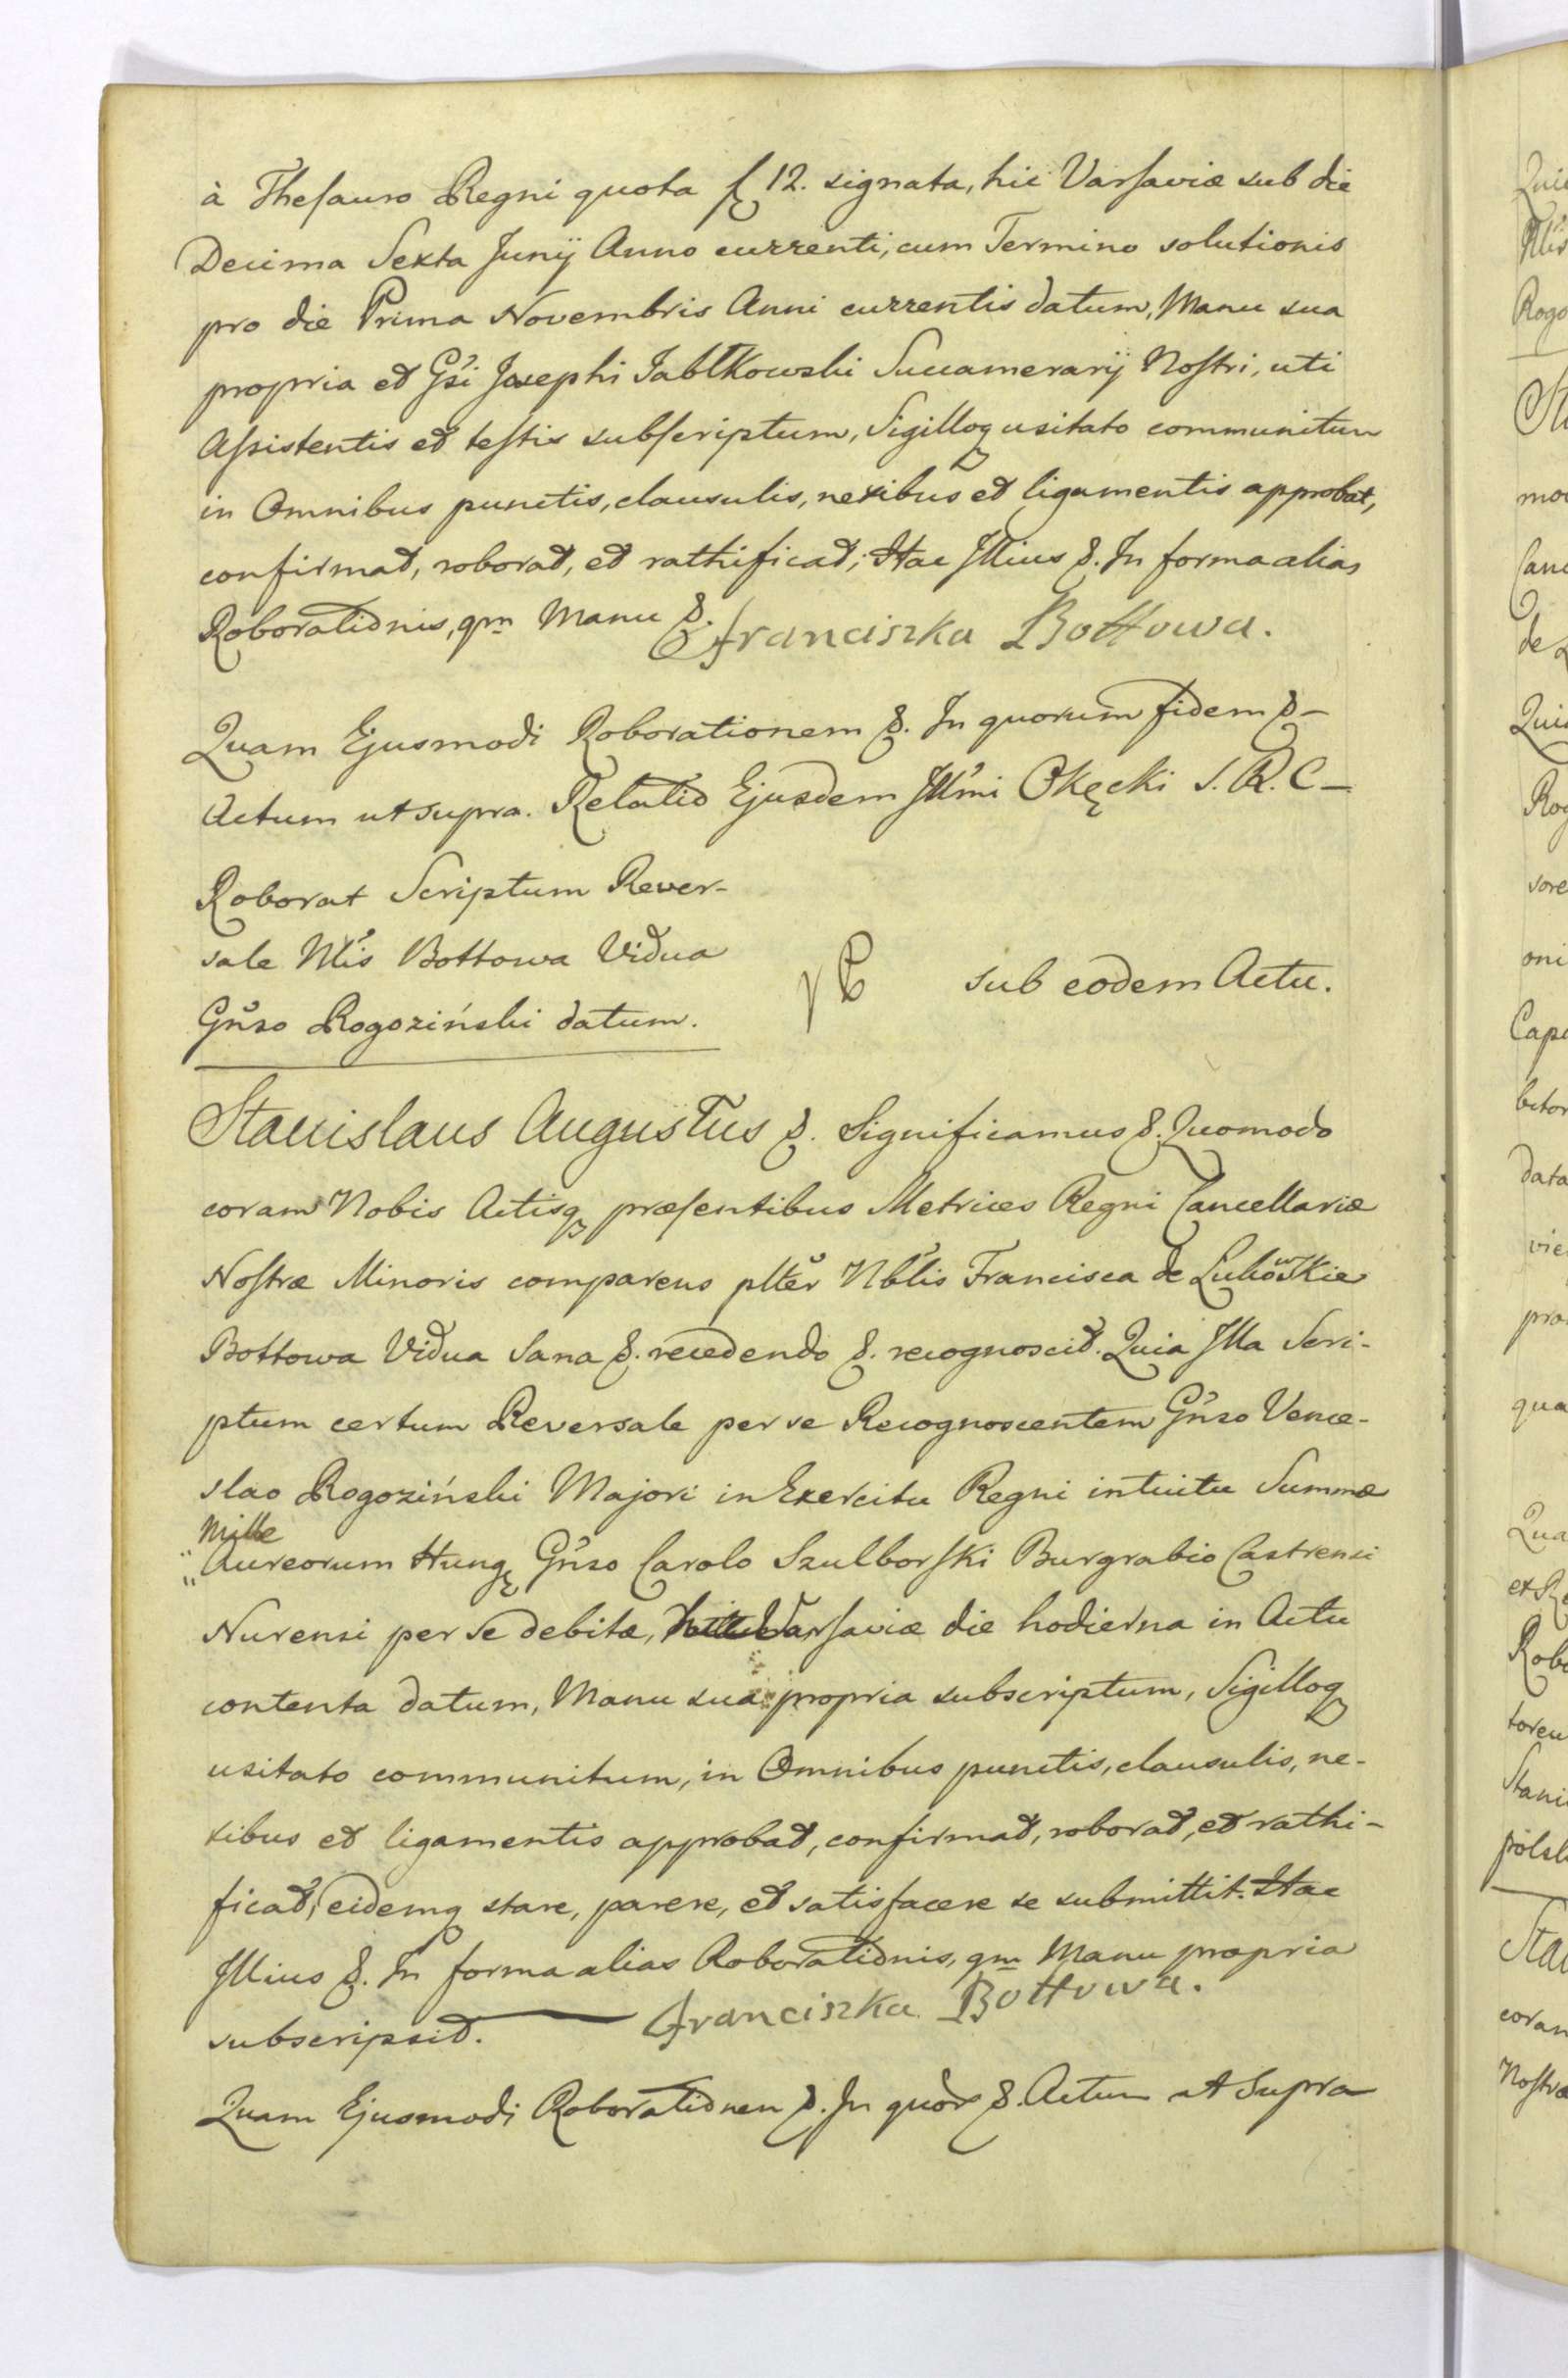 à Thesauro Regni quota f 12. signata, hic Varsaviæ sub die
Decima Sexta Junÿ Anno currenti, cum Termino solutionis
pro die Prima Novembris Anni currentis datum, Manu sua
propria et Gsi Josephi Jabłkowski Succamerarÿ Nostri, uti
Assistentis et testis subscriptum, Sigilloq usitato communitum
in Omnibus punctis, clausulis, nexibus et ligamentis approbat,
confirmat, roborat, et rathificat; Hac Illius &. In forma alias
Roborationis, qm Manu &. Franciszka Bottowa.
Quam Ejusmodi Roborationem &. In quorum fidem &-
Actum ut supra. Relatio Ejusdem Illmi Okęcki S. R. C-
Roborat Scriptum Rever-
sale Nlis Bottowa Vidua
Gnso Rogoziński datum.
sub eodem Actu.
Stanislaus Augustus &. Significamus &. Quomodo
coram Nobis Actisq præsentibus Metrices Regni Cancellariæ
Nostræ Minoris comparens plter Nblis Francisca de
Bottowa Vidua Sana &. recedendo &. recognoscit. Quia Illa Scri-
ptum certum Reversale per se Recognoscentem Gnso Vence-
slao Rogoziński Majori in Exercitu Regni intuitu Summæ
Mille
" Aureorum Hung Gnso Carolo Szulborski Burgrabio Castrensi
Nurensi per se debitæ, Varsaviæ die hodierna in Actu
contenta datum, Manu sua propria subscriptum, Sigilloq
usitato communitum, in Omnibus punctis, clausulis, ne-
xibus et ligamentis approbat, confirmat, roborat, et rathi-
ficat, eidemq stare, parere, et satisfacere se submittit. Hac
Illius &. In forma alias Roborationis, qm Manu propria
subscripsit. — Franciszka Bottowa.
Quam Ejusmodi Roborationem &. In quor &. Actum ut Supra